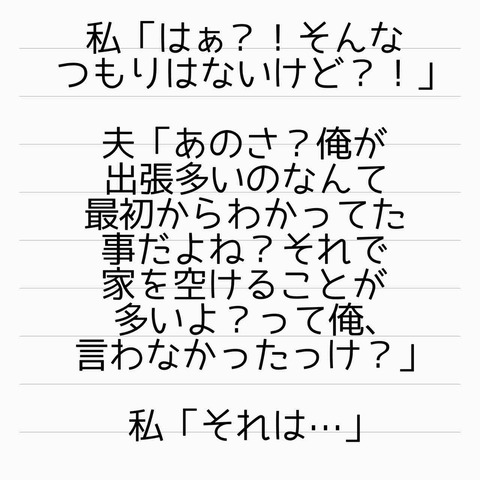 私「はぁ?!そんな
つもりはないけど?!」
夫「あのさ?俺が
出張多いのなんて
最初からわかってた
事だよね?それで
家を空けることが
多いよ?って俺、
言わなかったっけ?」
私「それは…」